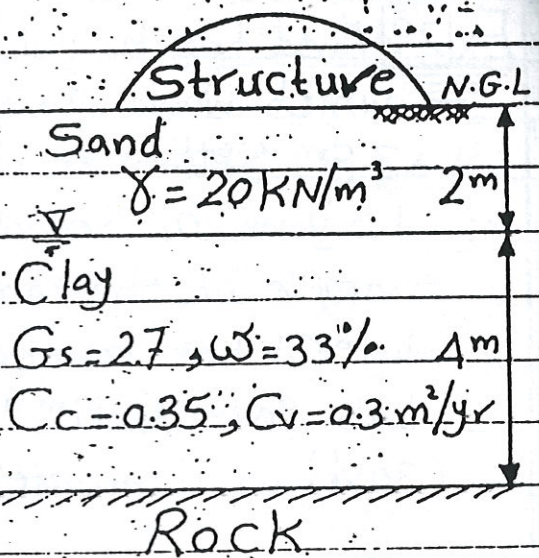 Structure N.G.L
Sand
γ = 20 KN/m³ 2m
Clay
Gs = 2.7 , ω = 33 % 4m
Cc = 0.35 , Cv = 0.3 m²/yr
Rock